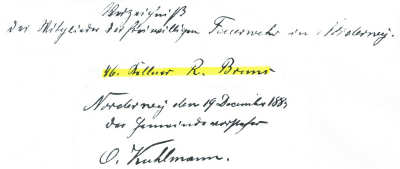 Verzeichniß
der Mitglieder der freiwilligen Feuerwehr in Norderney.
26. Kellner R. Bruns
Norderney den 19 December 1883
der Gemeindevorsteher
O. Kuhlmann.